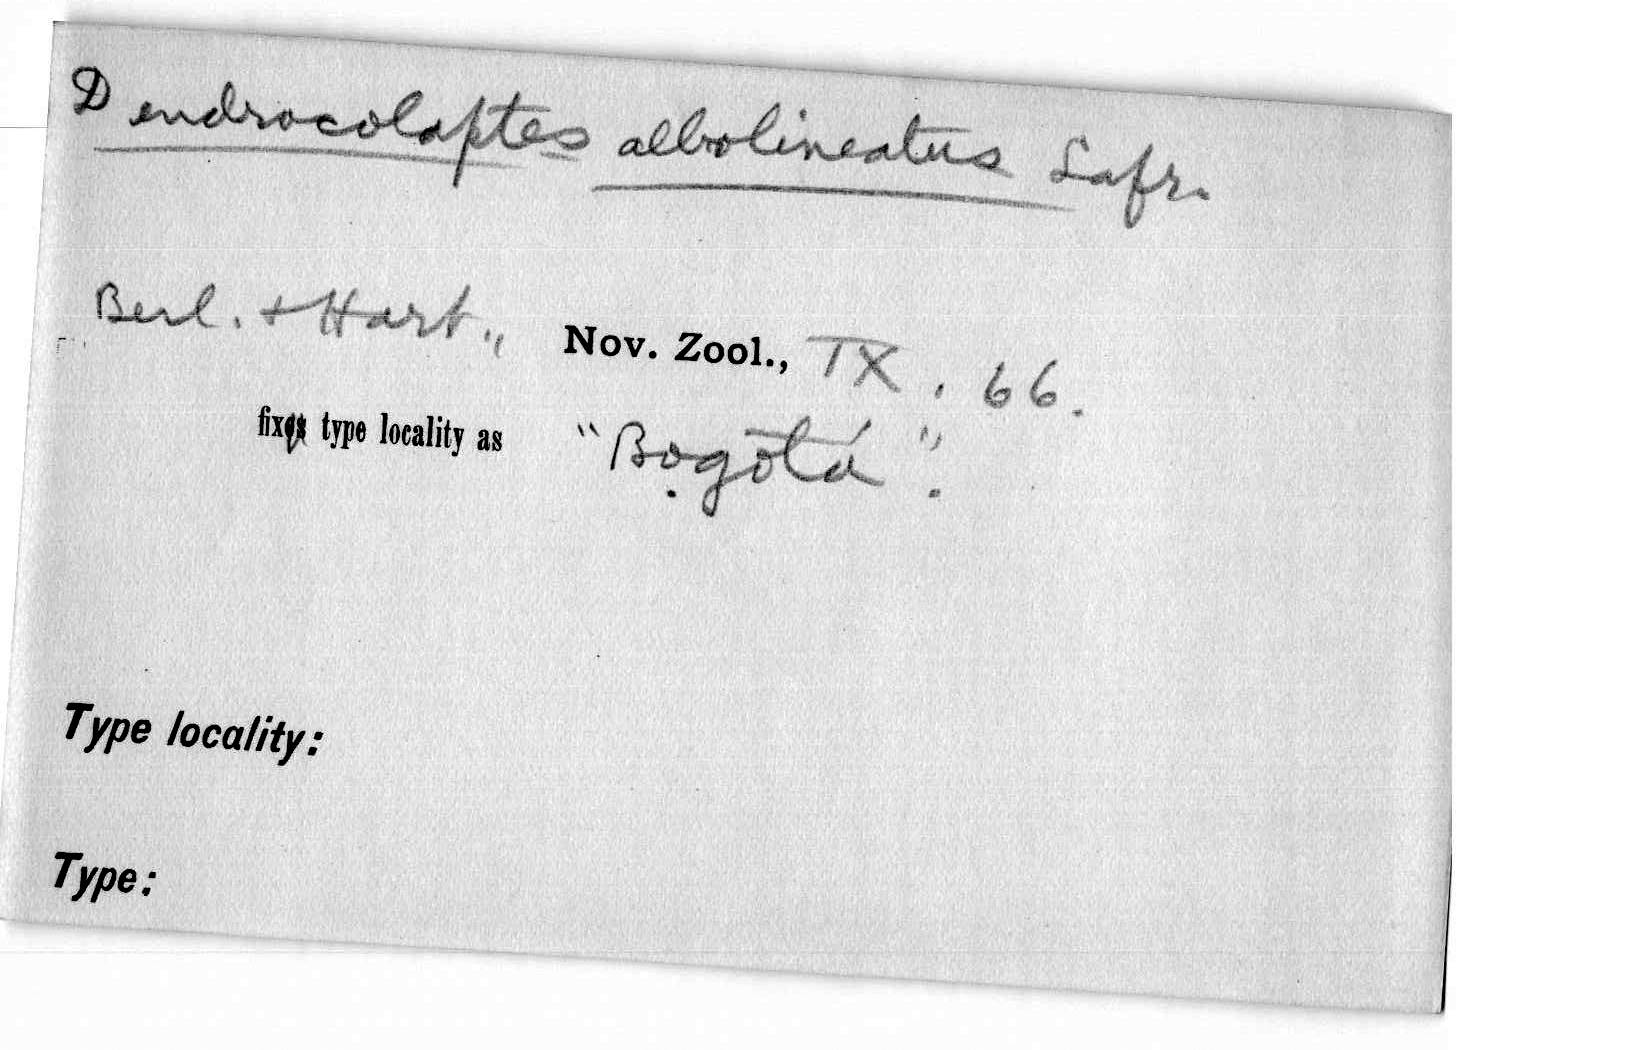 Dendrocolaptes albolineatus Lafr.
Berl. + Hart., Nov. Zool., IX, 66.
fix type locality as "Bogotá".
Type locality:
Type: